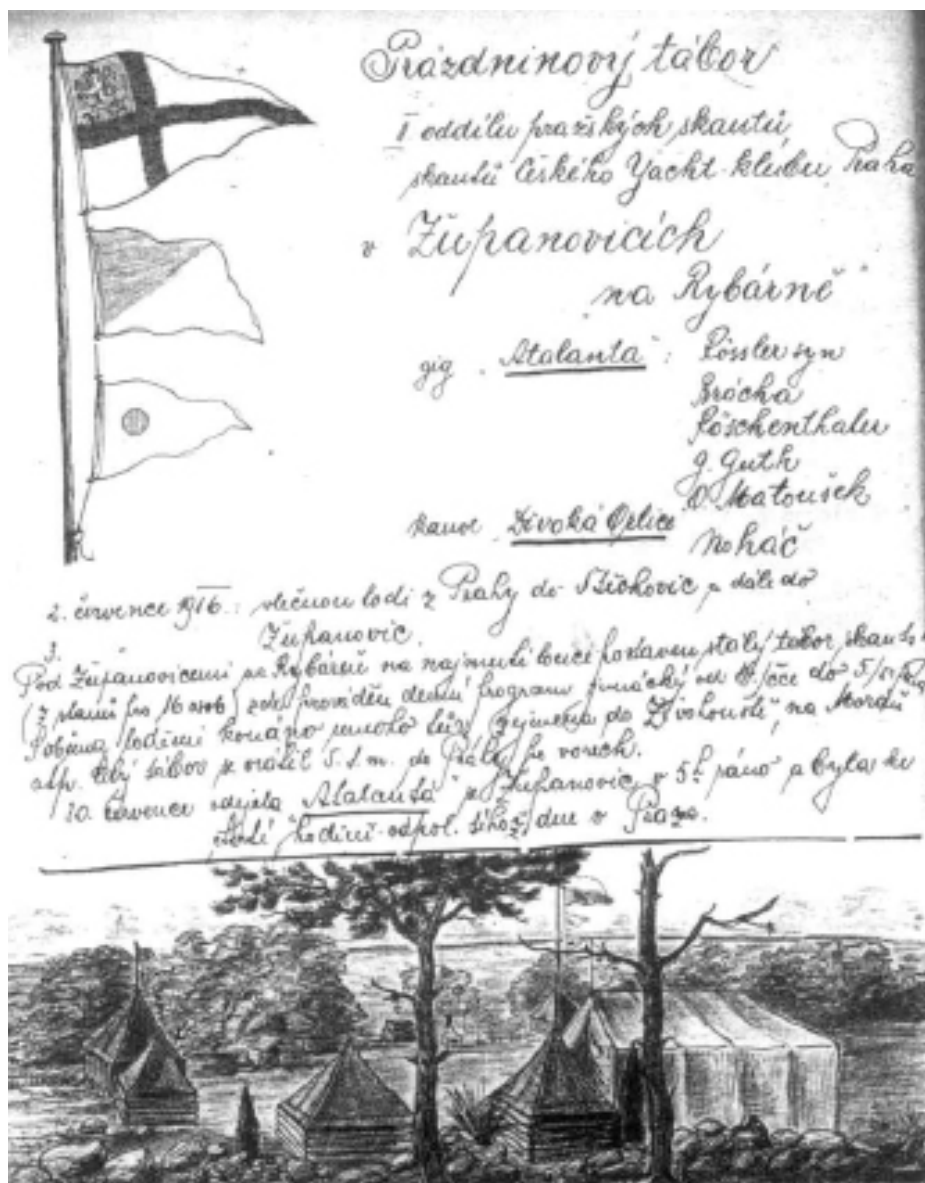 Prázdninový tábor
I oddílu pražských skautů,
skautů Českého Yacht-klubu Praha
v Županovicích
na Rybárně
gig „Atalanta": Rössler syn
Brócha
Röschenthaler
J. Guth
O. Matoušek
kanoe Divoká Orlice Noháč
2. července 1916.: vlečnou lodí z Prahy do Štěchovic a dále do
Županovic.
3.
Pod Županovicemi na Rybárně na najmuté louce postaven stálý tábor skautů
(z stanů pro 16 osob) zde prováděn denní program junácký od
lodími konáno mnoho zejména do Živohouště, na
atp. Celý tábor se vrátil 5. t. m. do Prahy po vorech.
30. července odjela Atalanta ze Županovic v 5 h. ráno a byla ke
hodině odpol. téhož dne v Praze.